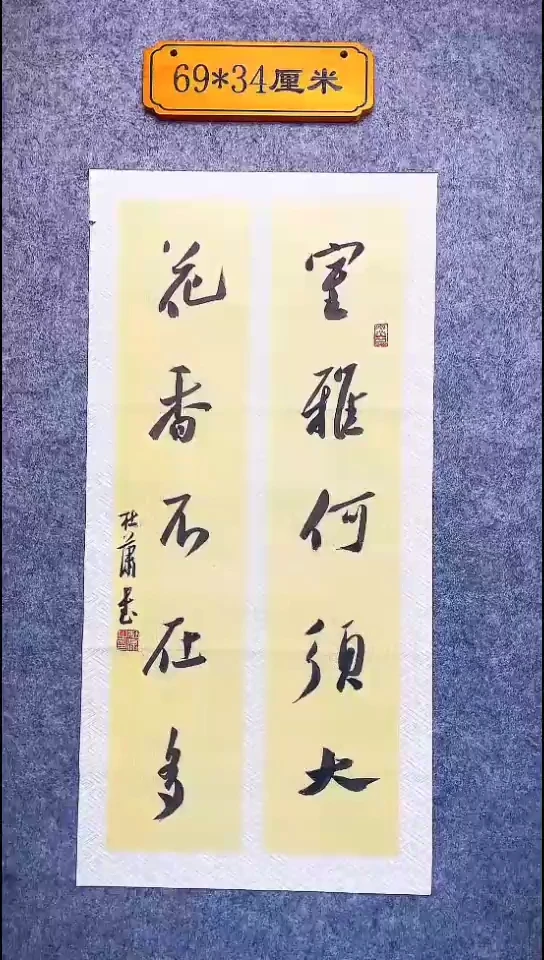 69*34厘米
室雅何须大
花香不在多
杜萧书